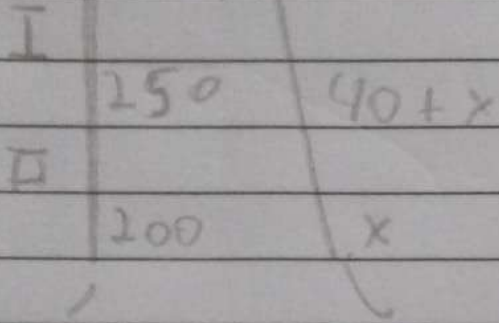 I
250 40+x
II
200 x